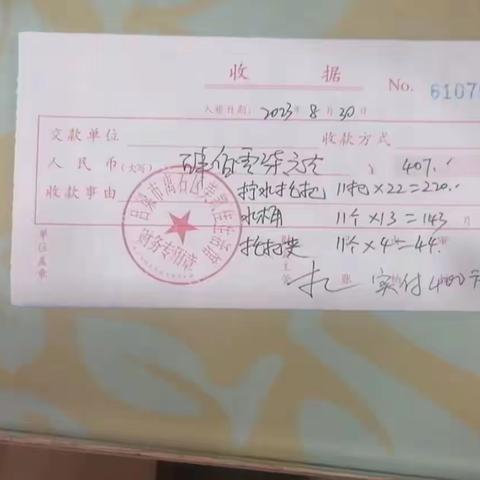 收 据
No. 6107
入账日期: 2023年 8月30日
交款单位 收款方式
人民币(大写) 肆佰零柒元 407.
收款事由 拧水拖把 11把×22=220..
水桶 11个×13=143
拖把夹 11个×4=44.
实付400元
单位盖章
财务专用章